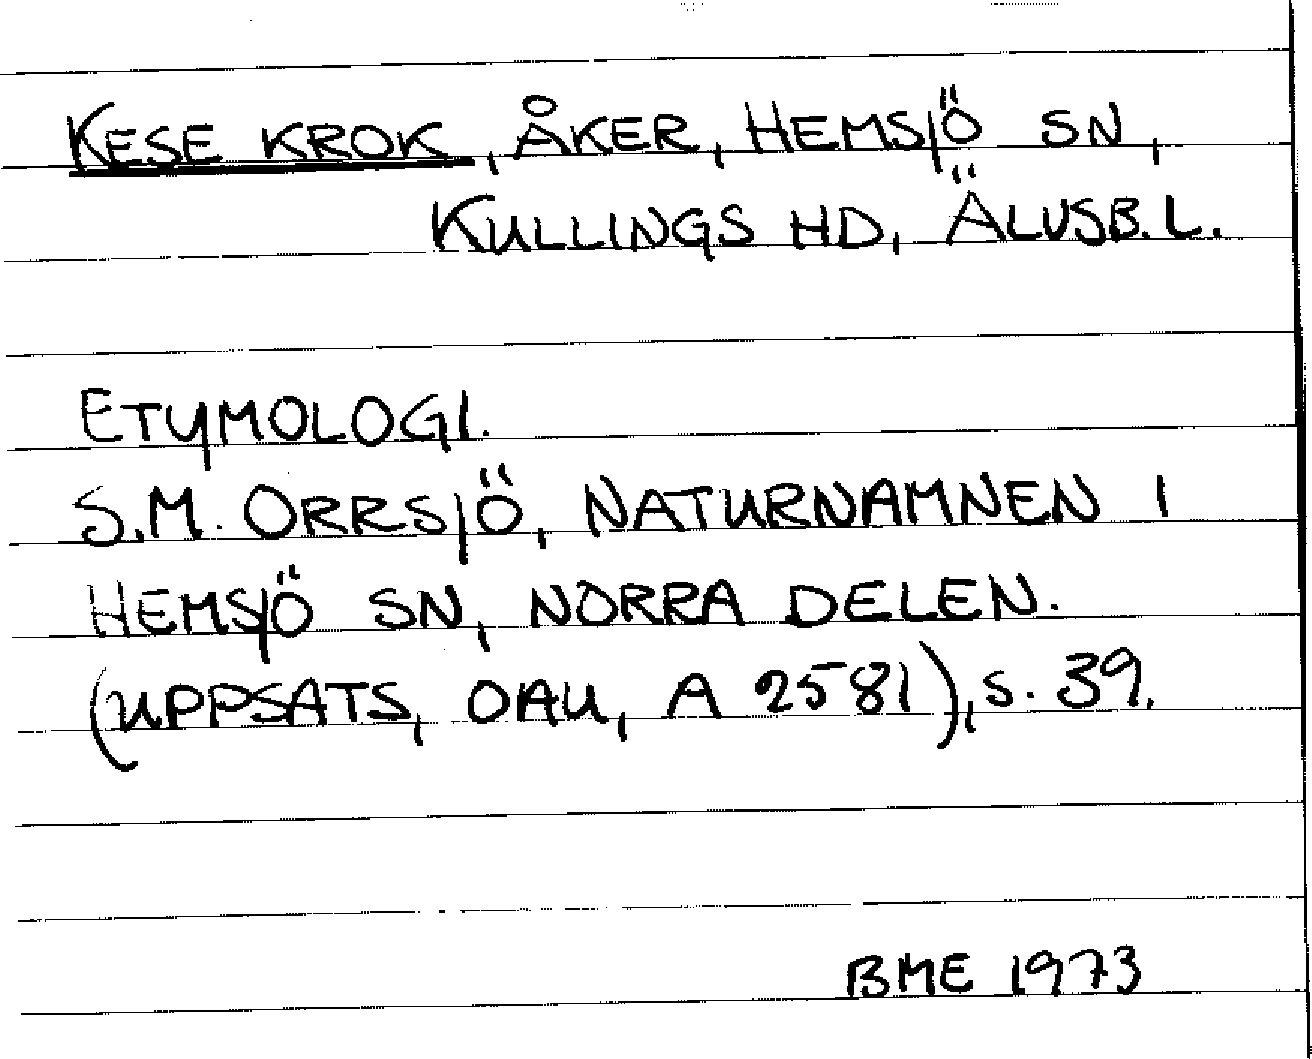 KESE KROK, ÅKER, HEMSJÖ SN,
KULLINGS HD, ÄLVSB. L.
ETYMOLOGI.
S.M. ORRSJÖ, NATURNAMNEN I
HEMSJÖ SN, NORRA DELEN.
(UPPSATS, OAU, A 2581), S. 39.
BME 1973